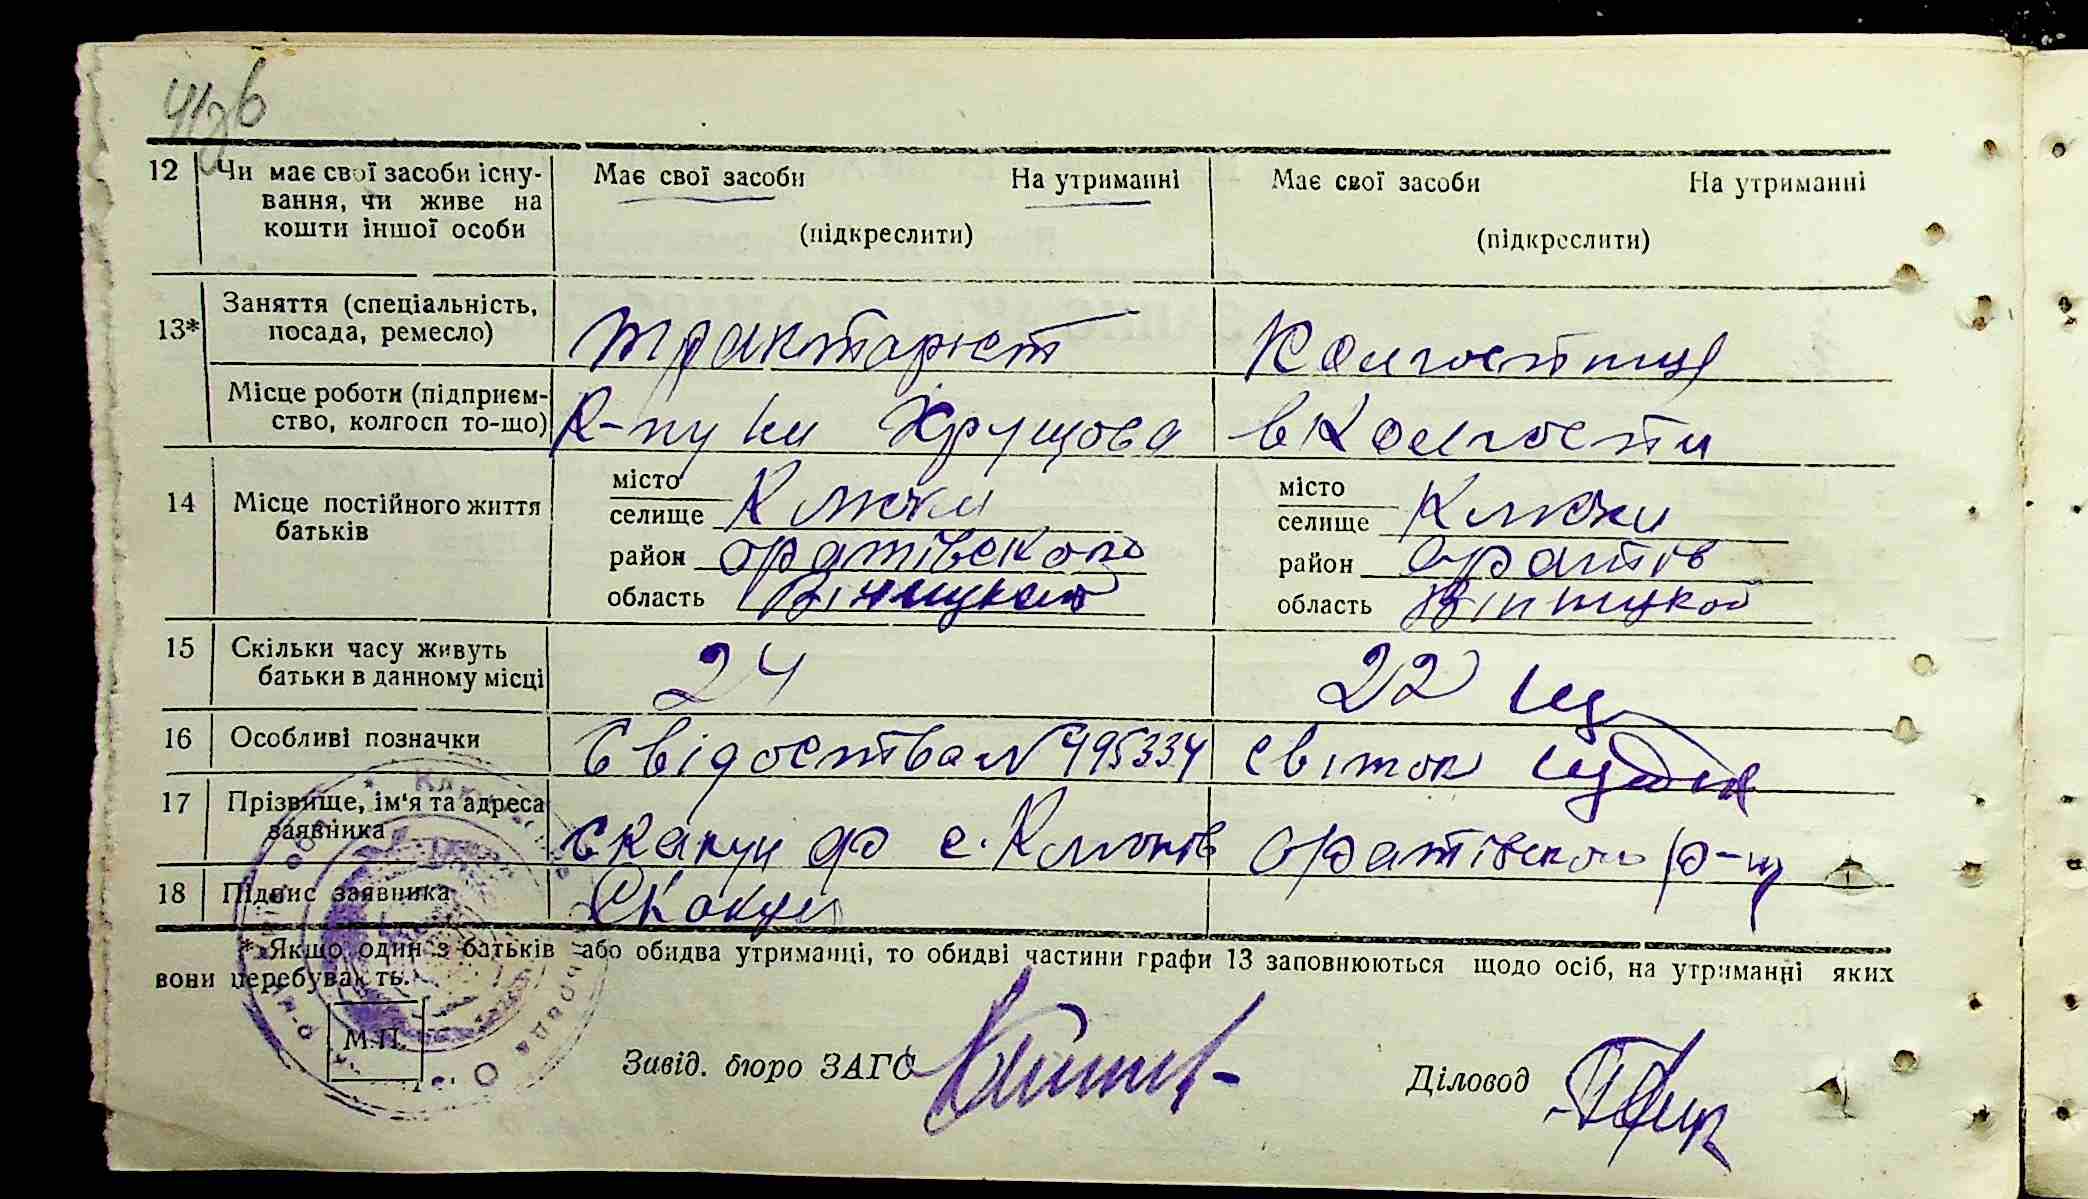 12 Чи має свої засоби існу-
вання, чи живе на
кошти іншої особи
Має свої засоби На утриманні
(підкреслити)
Має свої засоби На утриманні
(підкреслити)
13* Заняття (спеціальність,
посада, ремесло)
трактарист
Колгоспниця
Місце роботи (підприєм-
ство, колгосп то-що)
Хрущова
в Колгоспи
14 Місце постійного життя
батьків
місто
селище Клюки
район оратівского
область Вінницкой
місто
селище Клюки
район оратів
область Вінницкой
15 Скільки часу живуть
батьки в данному місці
24
22
16 Особливі позначки
Свідоства № 495334
17 Прізвище, ім'я та адреса
заявника
Скакун с. Клюків оратівского р-н
18 Підпис заявника
Скакун
* Якщо один з батьків або обидва утриманці, то обидві частини графи 13 заповнюються щодо осіб, на утриманні яких
вони перебувають.
М.П.
Завід. бюро ЗАГС
Діловод